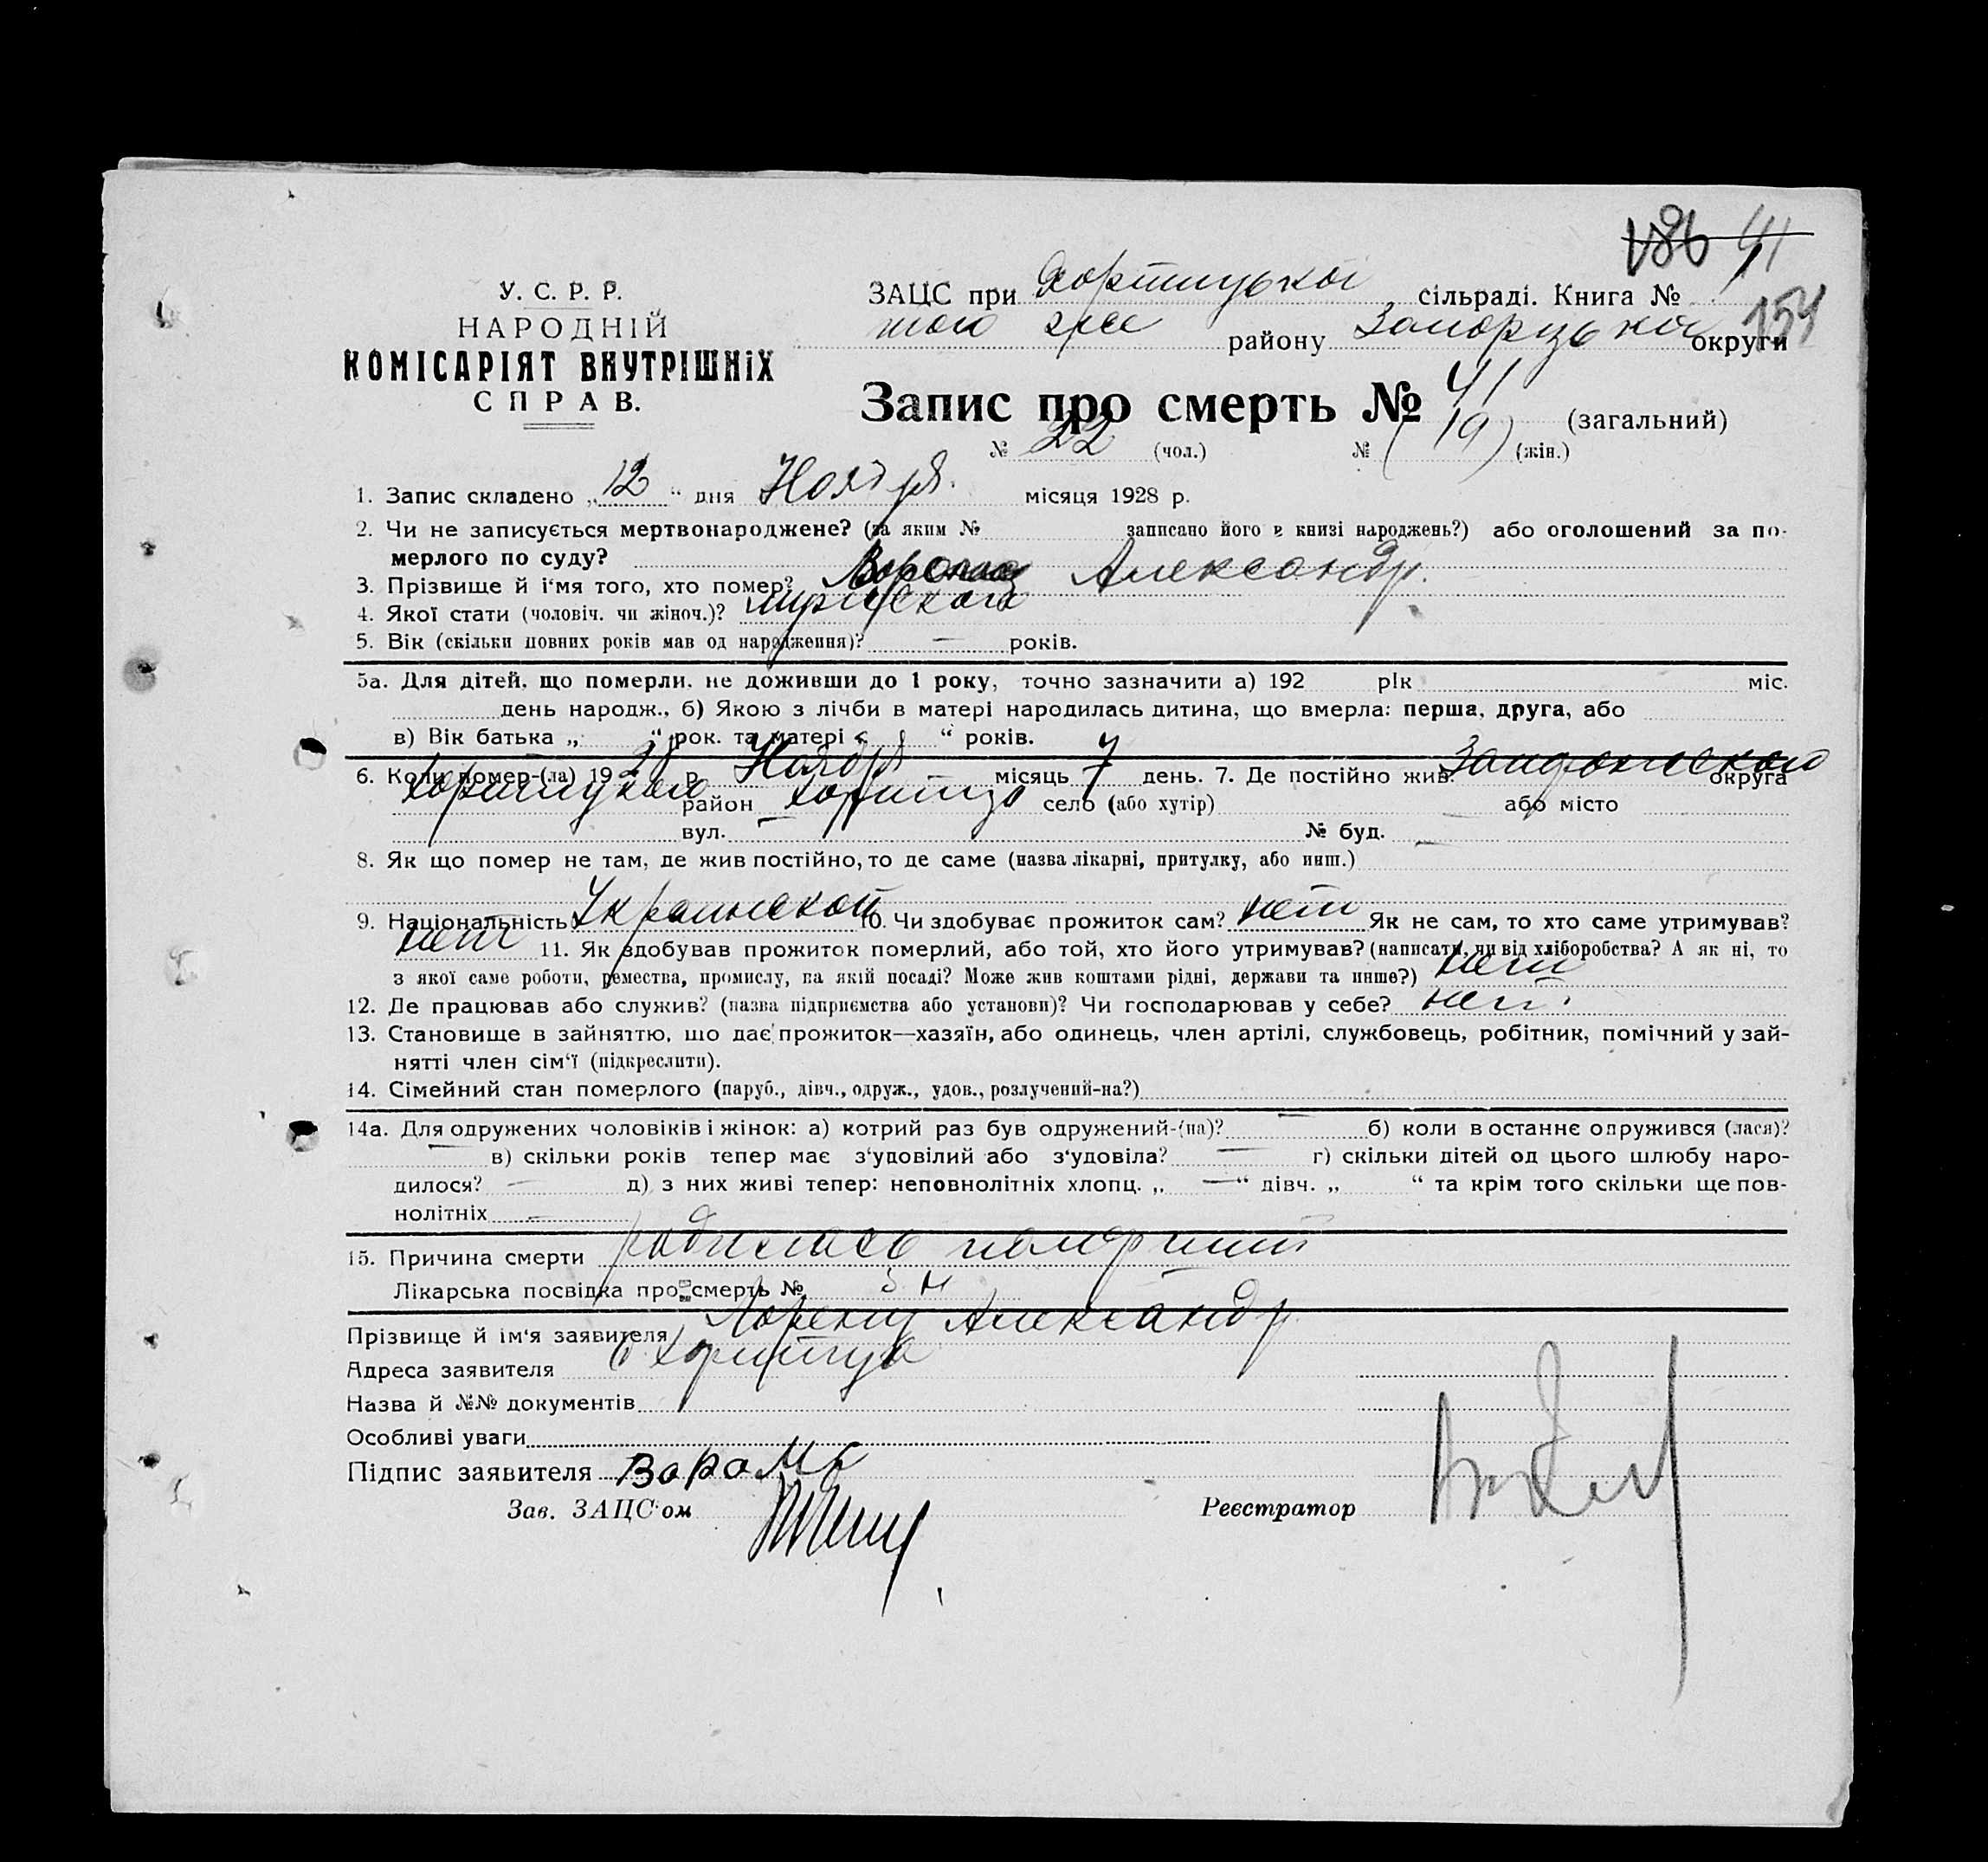 186 41
154
У. С. Р. Р.
НАРОДНІЙ
КОМІСАРІЯТ ВНУТРІШНІХ
СПРАВ.
ЗАЦС при Хортицькоі сільраді. Книга №
того же району округи
Запис про смерть № 41 (загальний)
№ 22 (чол.) № (19) (жін.)
1. Запис складено „12“ дня Ноября місяця 1928 р.
2. Чи не записується мертвонароджене? (за яким № записано його в книзі народжень?) або оголошений за по-
мерлого по суду?
3. Прізвище й і‘мя того, хто помер? Александр.
4. Якої стати (чоловіч. чи жіноч.)? мужского
5. Вік (скільки повних років мав од народження)? — років.
5а. Для дітей, що померли, не доживши до 1 року, точно зазначити а) 192 рік міс.
день народж., б) Якою з лічби в матері народилась дитина, що вмерла: перша, друга, або
в) Вік батька „ “ рок. та матері „ “ років.
6. Коли помер-(ла) 1928 р. Ноября місяць 7 день. 7. Де постійно жив: округа
Хортицкого район Хортица село (або хутір) — або місто
вул. — № буд. —
8. Як що помер не там, де жив постійно, то де саме (назва лікарні, притулку, або инш.)
9. Національність Украинской 10. Чи здобуває прожиток сам? нет Як не сам, то хто саме утримував?
нет 11. Як здобував прожиток померлий, або той, хто його утримував? (написати, чи від хліборобства? А як ні, то
з якої саме роботи, ремества, промислу, на якій посаді? Може жив коштами рідні, держави та инше?) нет
12. Де працював або служив? (назва підприємства або установи)? Чи господарював у себе? нет.
13. Становище в зайняттю, що дає прожиток—хазяїн, або одинець, член артілі, службовець, робітник, помічний у зай-
нятті член сім‘ї (підкреслити).
14. Сімейний стан померлого (паруб., дівч., одруж., удов., розлучений-на?)
14а. Для одружених чоловіків і жінок: а) котрий раз був одружений-(на)? — б) коли в останнє одружився (лася)?
— в) скільки років тепер має з‘удовілий або з‘удовіла? — г) скільки дітей од цього шлюбу наро-
дилося? — д) з них живі тепер: неповнолітніх хлопц. „—“ дівч. „ “ та крім того скільки ще пов-
нолітніх —
15. Причина смерти родилась
Лікарська посвідка про смерть №
Прізвище й ім‘я заявителя Александр
Адреса заявителя с. Хортица
Назва й №№ документів
Особливі уваги
Підпис заявителя
Зав. ЗАЦС‘ом Реєстратор